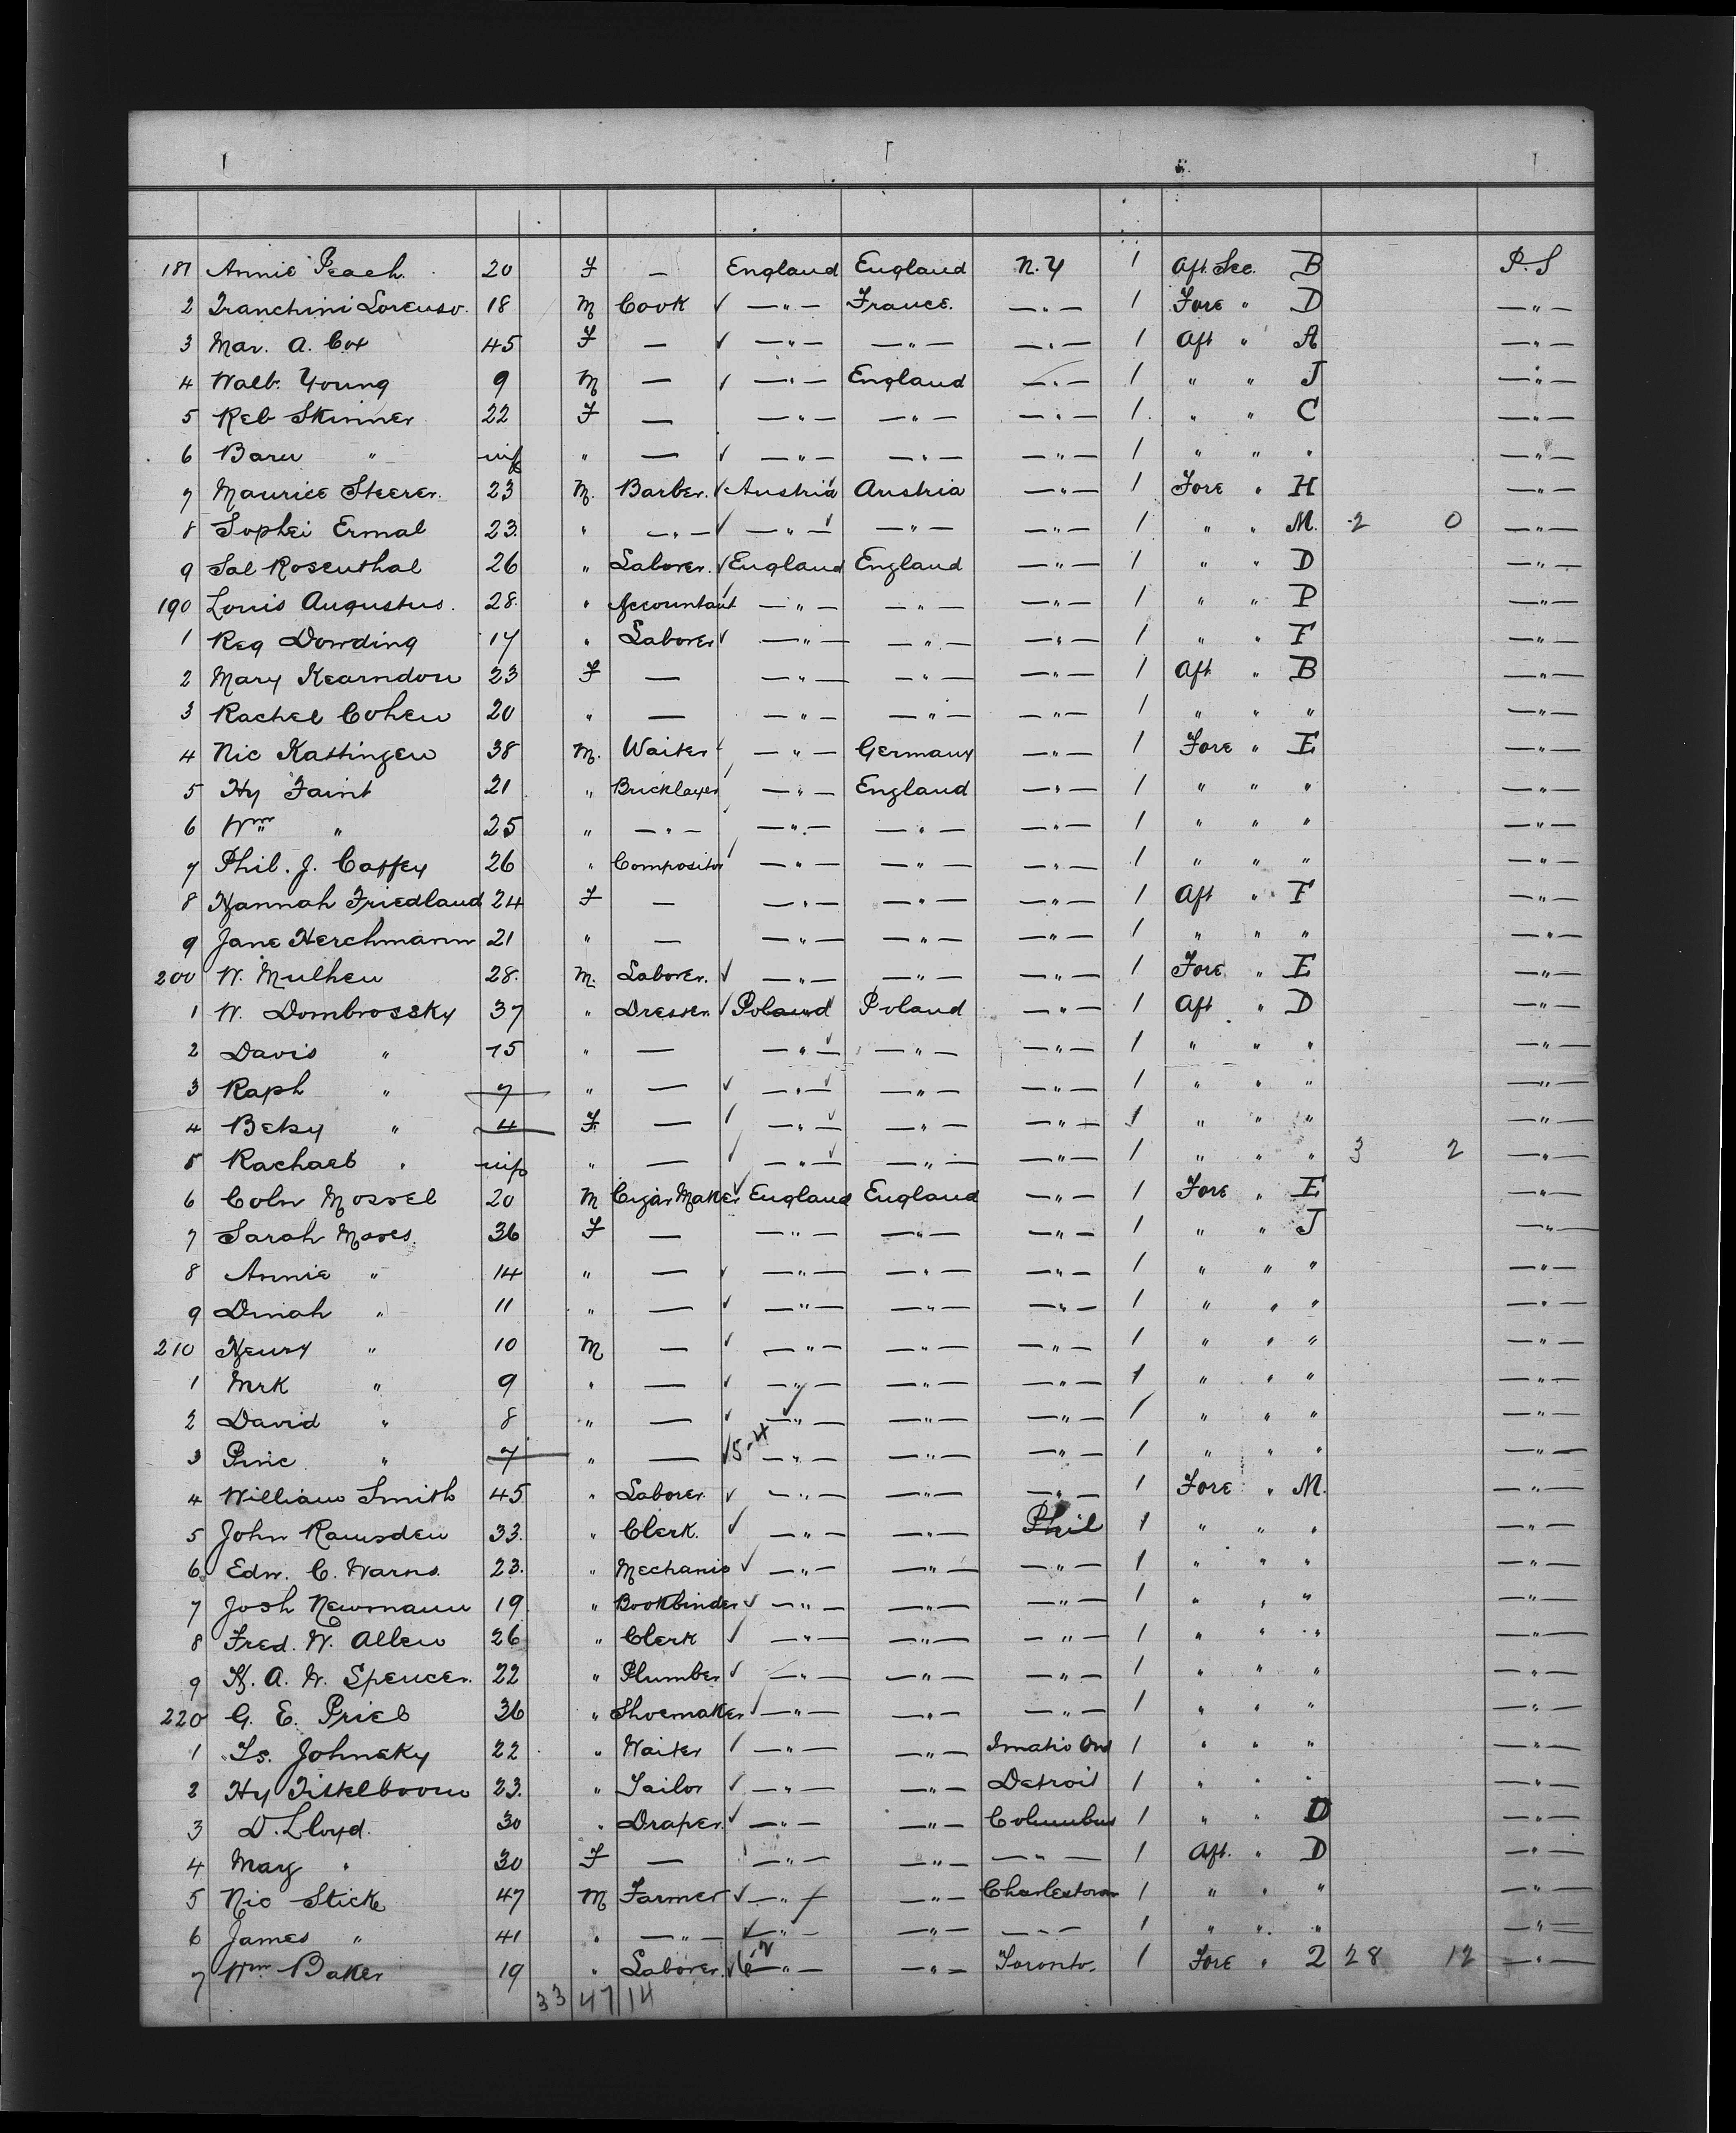 181 Annie Peach. 20 F — England England N.Y 1 Aft. Sec. B P.S
2 Tranchini Lorenso. 18 M Cook ✓ —"— France. —"— 1 Fore " D —"—
3 Mar. A. Cox 45 F — ✓ —"— —"— —"— 1 Aft " A —"—
4 Walt. Young 9 M — ✓ —"— England —"— 1 " " J —"—
5 Reb Skinner 22 F — —"— —"— —"— 1 " " C —"—
6 " inf " — ✓ —"— —"— —"— 1 " " " —"—
7 Maurice Steerer. 23 M. Barber. ✓ Austria Austria —"— 1 Fore " H —"—
8 Sophei Ermal 23. " —"— ✓ —"— —"— —"— 1 " " M. 2 0 —"—
9 Sal Rosenthal 26 " Laborer. ✓ England England —"— 1 " " D —"—
190 Louis Augustus. 28. " Accountant —"— —"— —"— 1 " " P —"—
1 Reg Dowding 17 " Laborer ✓ —"— —"— —"— 1 " " F —"—
2 Mary Kearndon 23 F — —"— —"— —"— 1 Aft " B —"—
3 Rachel Cohen 20 " — —"— —"— —"— 1 " " " —"—
4 Nic Kattingen 38 M. Waiter ✓ —"— Germany —"— 1 Fore " E —"—
5 Hy Faint 21 " Bricklayer —"— England —"— 1 " " " —"—
6 Wm " 25 " —"— —"— —"— —"— 1 " " " —"—
7 Phil. J. Caffey 26 " Compositor ✓ —"— —"— —"— 1 " " " —"—
8 Hannah Friedland 24 F — —"— —"— —"— 1 Aft " F —"—
9 Jane Herchmann 21 " — —"— —"— —"— 1 " " " —"—
200 W. Mulhen 28. M. Laborer. ✓ —"— —"— —"— 1 Fore " E —"—
1 W. Dombrossky 37 " Dresser ✓ Poland Poland —"— 1 Aft " D —"—
2 Davis " 15 " — —"— —"— —"— 1 " " " —"—
3 Raph " 7 " — ✓ —"— —"— —"— 1 " " " —"—
4 Beksy " 4 F. — ✓ —"— —"— —"— 1 " " " —"—
5 Rachael " inf " — ✓ —"— —"— —"— 1 " " " 3 2 —"—
6 Coln Mossel 20 M Cigar Maker ✓ England England —"— 1 Fore " E —"—
7 Sarah Moses. 36 F — —"— —"— —"— 1 " " J —"—
8 Annie " 14 " — ✓ —"— —"— —"— 1 " " " —"—
9 Dinah " 11 " — ✓ —"— —"— —"— 1 " " " —"—
210 Henry " 10 M — ✓ —"— —"— —"— 1 " " " —"—
1 Mrk " 9 " — ✓ —"— —"— —"— 1 " " " —"—
2 David " 8 " — ✓ —"— —"— —"— 1 " " " —"—
3 " 7 " — ✓ 5-4 —"— —"— —"— 1 " " " —"—
4 William Smith 45 " Laborer. ✓ —"— —"— —"— 1 Fore " M. —"—
5 John Ramsden 33. " Clerk. ✓ —"— —"— Phil 1 " " " —"—
6 Edw. C. Warns. 23. " Mechanic ✓ —"— —"— —"— 1 " " " —"—
7 Josh Newmann 19 " Bookbinder ✓ —"— —"— —"— 1 " " " —"—
8 Fred. W. Allen 26 " Clerk ✓ —"— —"— —"— 1 " " " —"—
9 A. W. Spencer. 22 " Plumber ✓ —"— —"— —"— 1 " " " —"—
220 G. E. 36 " Shoemaker ✓ —"— —"— —"— 1 " " " —"—
1 Is. Johnsky 22 " Waiter ✓ —"— —"— 1 " " " —"—
2 Hy Tistelboom 23. " Tailor ✓ —"— —"— Detroit 1 " " " —"—
3 D. Lloyd. 30 " Draper. ✓ —"— —"— Columbus 1 " " D —"—
4 Mary " 30 F — —"— —"— —"— 1 Aft. " D —"—
5 Nic Stick 47 M Farmer ✓ —"— —"— Charlestown 1 " " " —"—
6 James " 41 " —"— ✓ —"— —"— —"— 1 " " " —"—
7 Wm. Baker 19 " Laborer. ✓ —"— —"— Toronto. 1 Fore " 2 28 12 —"—
33 47 14